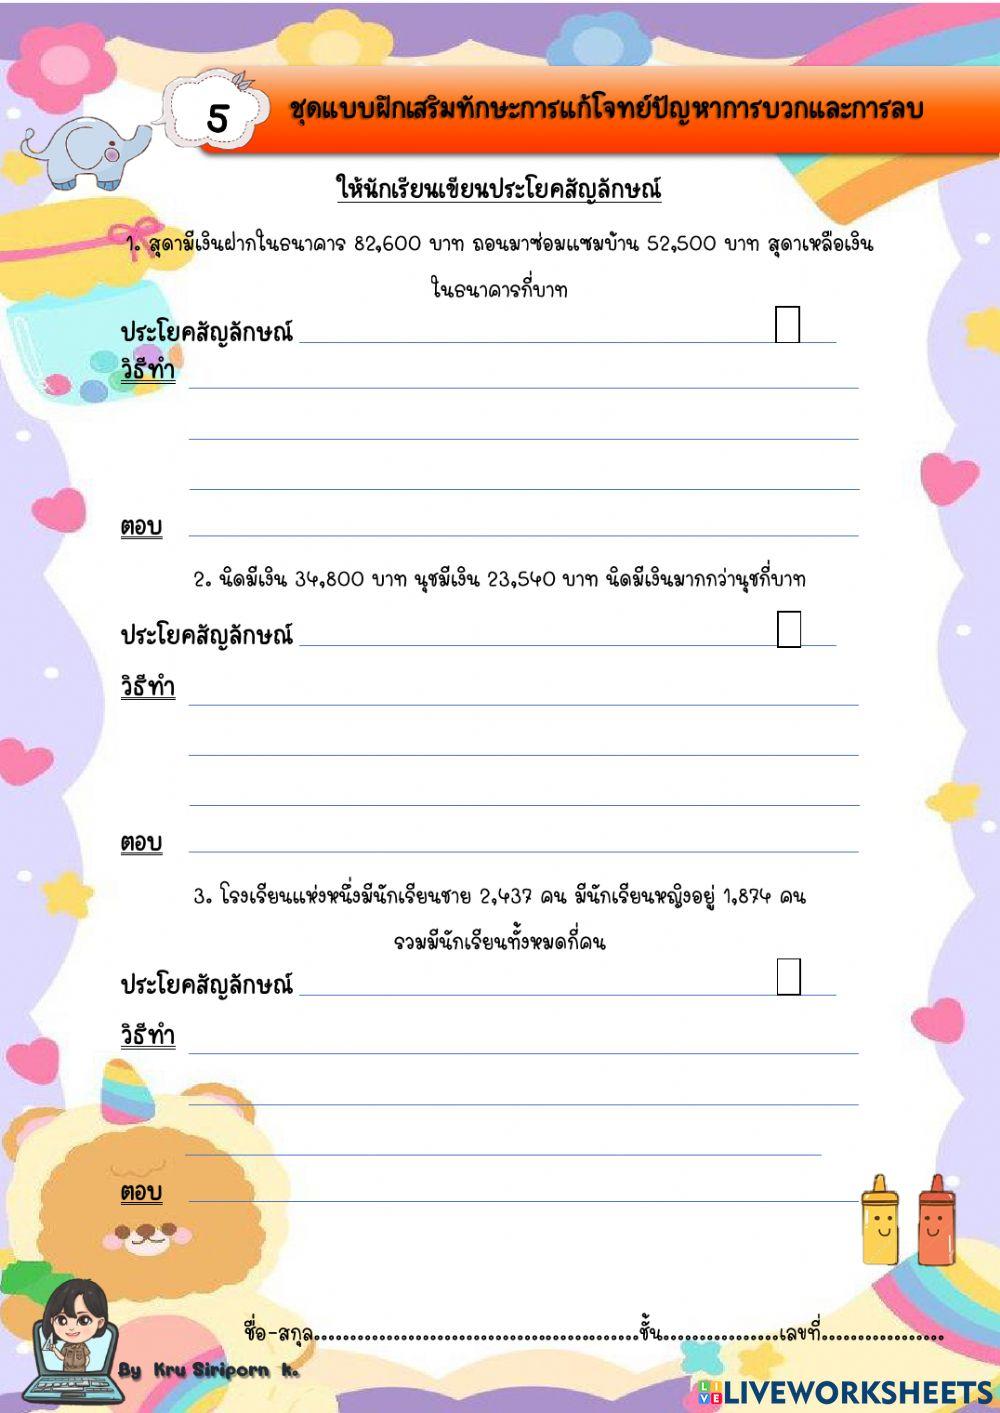 5
ชุดแบบฝึกเสริมทักษะการแก้โจทย์ปัญหาการบวกและการลบ
ให้นักเรียนเขียนประโยคสัญลักษณ์
1. สุดามีเงินฝากในธนาคาร 82,600 บาท ถอนมาซ่อมแซมบ้าน 52,500 บาท สุดาเหลือเงิน
ในธนาคารกี่บาท
ประโยคสัญลักษณ์
วิธีทำ
ตอบ
2. นิดมีเงิน 34,800 บาท นุชมีเงิน 23,540 บาท นิดมีเงินมากกว่านุชกี่บาท
ประโยคสัญลักษณ์
วิธีทำ
ตอบ
3. โรงเรียนแห่งหนึ่งมีนักเรียนชาย 2,437 คน มีนักเรียนหญิงอยู่ 1,874 คน
รวมมีนักเรียนทั้งหมดกี่คน
ประโยคสัญลักษณ์
วิธีทำ
ตอบ
ชื่อ-สกุล.............................................ชั้น................เลขที่.................
By Kru Siriporn k.
LIVEWORKSHEETS